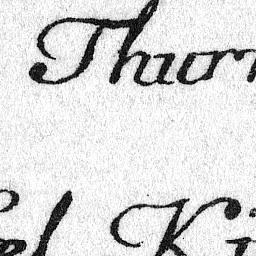 Thur
el Ki